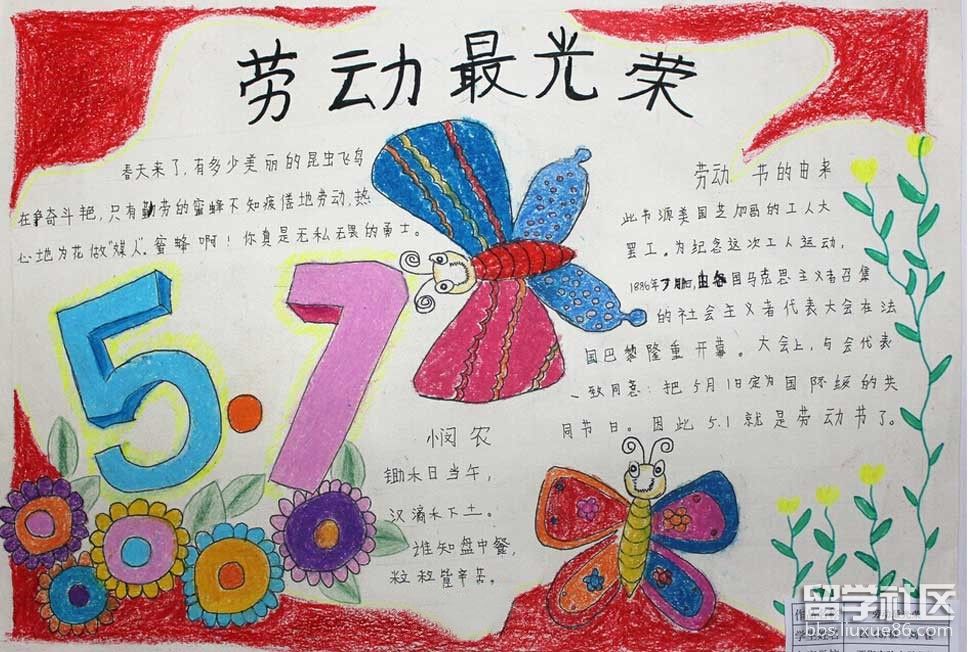 劳动最光荣
春天来了,有多少美丽的昆虫飞鸟
在争奇斗艳,只有勤劳的蜜蜂不知疲倦地劳动,热
心地为花做“媒人”。蜜蜂啊!你真是无私无畏的勇士。
5·1
劳动 节的由来
此节源美国芝加哥的工人大
罢工。为纪念这次工人运动,
1886年 国马克思主义者召集
的社会主义者代表大会在法
国巴黎隆重开幕。大会上,与会代表
一致同意:把5月1日定为国际级的共
同节日。因此5.1就是劳动节了。
悯农
锄禾日当午,
汉滴禾下土。
谁知盘中餐,
粒粒皆辛苦。
留学社区
bbs.liuxue86.com
学生姓名